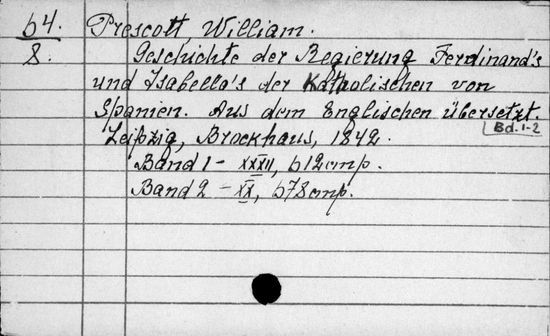 64. Prescott, William.
8. Geschichte der Regierung Ferdinand's
und Isabella's der Katholischen von
Spanien. Aus dem Englischen übersetzt.
Leipzig, Brockhaus, 1842. Bd. 1-2
Band 1 - XXXII, 612
Band 2 - XX, 678